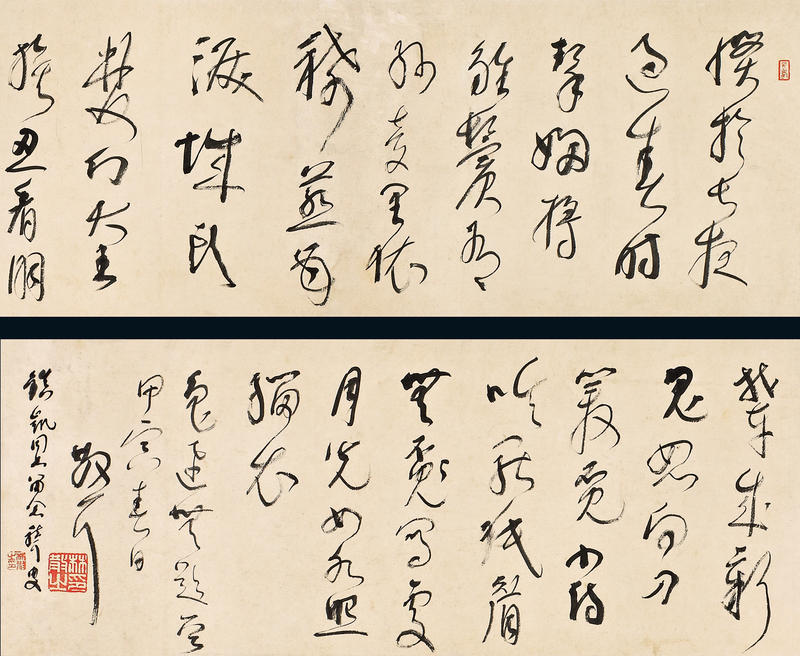 慣於長夜
過春時
挈婦將
雛鬢有
絲夢里依
稀慈母
淚城頭
變幻大王
旗忍看朋
輩成新
鬼怒向刀
叢覓小詩
吟罷低眉
無寫處
月光如水照
緇衣
魯迅無題
甲寅春日
散耳